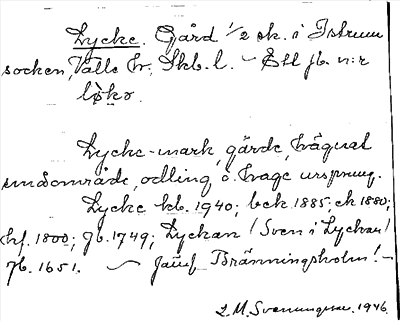 Lycke. Gård 1/2 sk. i Istrum
socken, Valle hr, Skb. l. – Ett jb. n:r
løkə.
Lycke-mark, gärde, hägnat
område, odling o. hage urspung.
Lycke kb. 1940; bck. 1885, ck 1880;
hf. 1800; jb. 1749; Lyckan (Sven i Lyckan)
jb. 1651. – Jämf Bränningsholm! –
L. M. Svenungsson. 1946